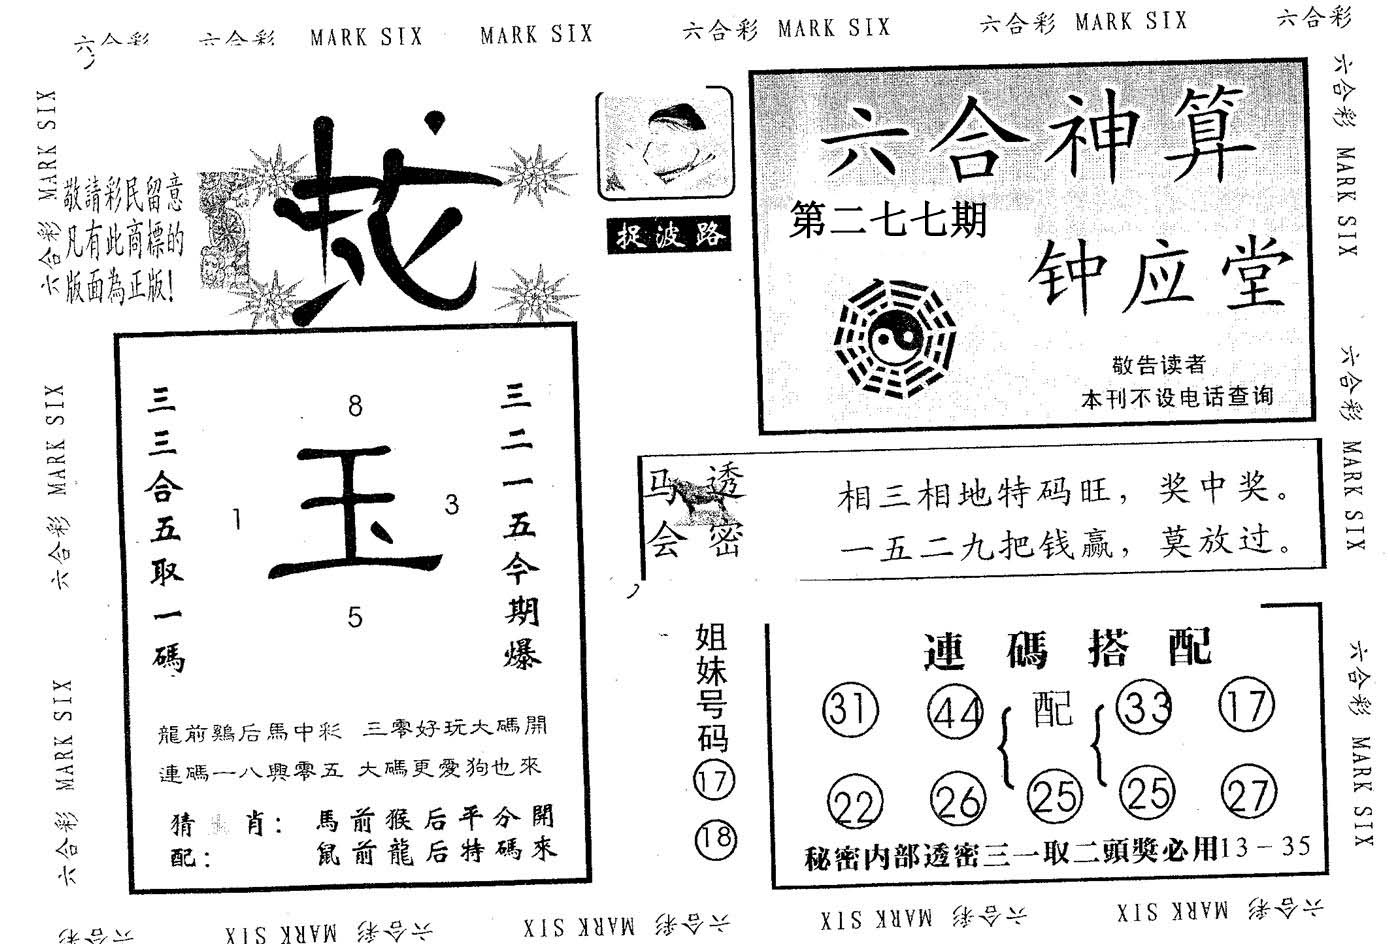 六合彩 六合彩 MARK SIX MARK SIX 六合彩 MARK SIX 六合彩 MARK SIX 六合彩
六合彩 MARK SIX
六合彩 MARK SIX
六合彩 MARK SIX
敬請彩民留意
凡有此商標的
版面為正版!
捉波路
六合神算
第二七七期
钟应堂
敬告读者
本刊不设电话查询
三三合五取一碼
8
1
玉
3
5
三二一五今期爆
龍前鷄后馬中彩 三零好玩大碼開
連碼一八興零五 大碼更愛狗也來
猜 肖: 馬前猴后平分開
配: 鼠前龍后特碼來
马会透密
相三相地特码旺,奖中奖。
一五二九把钱赢,莫放过。
姐妹号码
17
18
連碼搭配
31 44 配 33 17
22 26 25 25 27
秘密内部透密三一取二頭獎必用13-35
六合彩 MARK SIX
六合彩 MARK SIX
六合彩 MARK SIX
六合彩 六合彩 MARK SIX 六合彩 MARK SIX 六合彩 MARK SIX 六合彩 MARK SIX